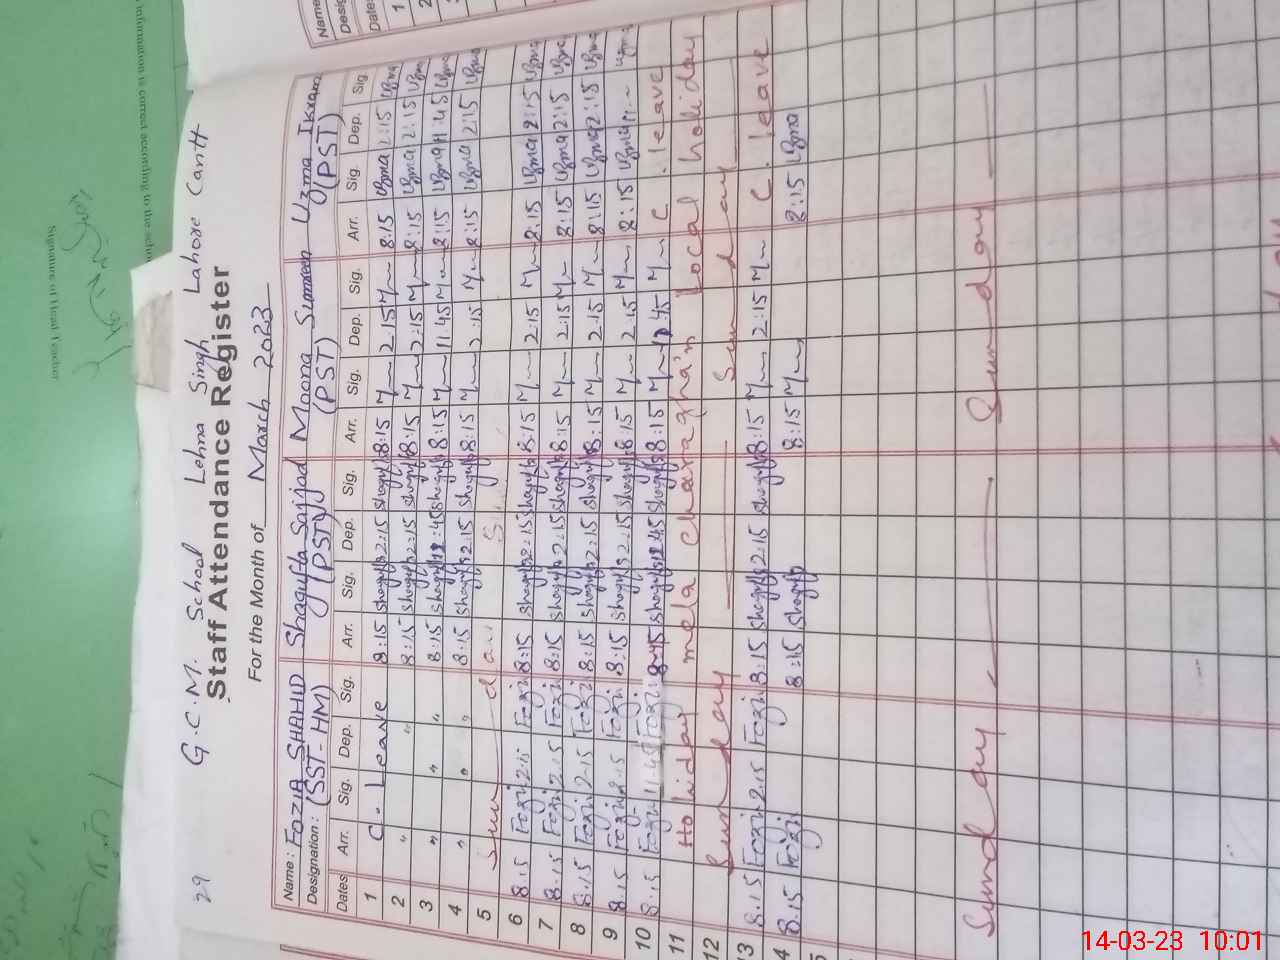 29 G.C.M. School Lehna Singh Lahore Cantt
Staff Attendance Register
For the Month of March 2023
Name: FOZIA SHAHID Shagufta Sajjad Moona Sumeen Uzma Ikram
Designation: (SST-HM) (PST) (PST) (PST)
Dates Arr. Sig. Dep. Sig. Arr. Sig. Dep. Sig. Arr. Sig. Dep. Sig. Arr. Sig. Dep. Sig.
1 C. Leave 8:15 Shagufta 2:15 Shagufta 8:15 2:15 8:15 Uzma 2:15 Uzma
2 " " 8:15 Shagufta 2:15 Shagufta 8:15 2:15 8:15 Uzma 2:15 Uzma
3 " " " 8:15 Shagufta Shagufta 8:15 11:45 8:15 Uzma 11:45 Uzma
4 " " " 8:15 Shagufta 2:15 Shagufta 8:15 2:15 8:15 Uzma 2:15 Uzma
5 Sunday
6 8:15 Fozia 2:15 Fozia 8:15 Shagufta 2:15 Shagufta 8:15 2:15 8:15 Uzma 2:15 Uzma
7 8:15 Fozia 2:15 Fozia 8:15 Shagufta 2:15 Shagufta 8:15 2:15 8:15 Uzma 2:15 Uzma
8 8:15 Fozia 2:15 Fozia 8:15 Shagufta 2:15 Shagufta 8:15 2:15 8:15 Uzma 2:15 Uzma
9 8:15 Fozia 2:15 Fozia 8:15 Shagufta 2:15 Shagufta 8:15 2:15 8:15 Uzma Uzma
10 8:15 Fozia 11:45 Fozia 8:15 Shagufta Shagufta 8:15 11:45 C. leave
11 Holiday mela Charaghan Local holiday
12 Sunday Sunday
13 8:15 Fozia 2:15 Fozia 8:15 Shagufta 2:15 Shagufta 8:15 2:15 C. leave
14 8:15 Fozia 8:15 Shagufta 8:15 8:15 Uzma
Sunday Sunday
Name
Date
1
2
information is correct according to the
Signature of Head Teacher
14-03-23 10:01